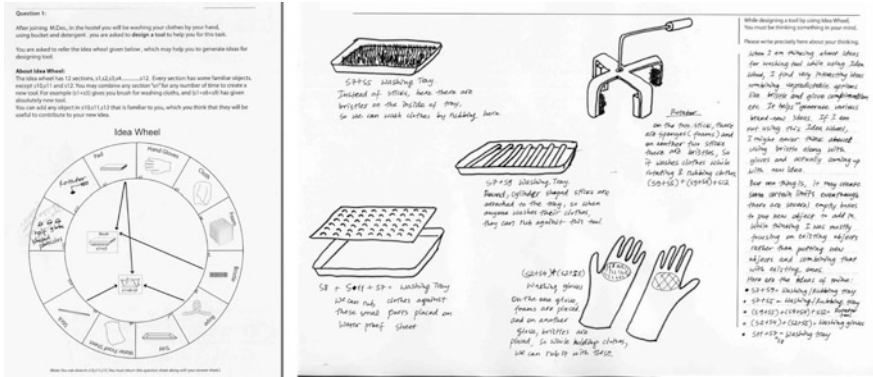 Question 1:
After joining M.Des., in the hostel you will be washing your clothes by your hand,
using bucket and detergent. you are asked to design a tool to help you for this task.
You are asked to refer the idea wheel given below, which may help you to generate ideas for
designing tool.
About Idea Wheel:
The idea wheel has 12 sections, s1,s2,s3,s4..........s12. Every section has some familiar objects,
except s10,s11 and s12. You may combine any section "sn" for any number of time to create a
new tool. For example (s1+s5) gives you brush for washing cloths, and (s1+s6+s8) has given
absolutely new tool.
You can add any object in s10,s11,s12 that is familiar to you, which you think that they will be
useful to contribute to your new idea.
Idea Wheel
Pad
Hand Gloves
Cloth
Foam
Bristle
Rope
Tray
Water Proof Sheet
Stick
half globe
shaped
Rotator
Brush
S7+S5 Washing Tray
Instead of sticks, here there are
bristles on the inside of tray,
so we can wash clothes by rubbing here.
S7+S9 Washing Tray.
Round, cylinder shaped sticks are
attached to the tray, so when
anyone washes their clothes,
they can rub against this tool.
S8 + S11 + S7 = Washing Tray
We can rub clothes against
these small parts placed on
water proof
sheet
Rotator
on the two stick, there
are sponges (foams) and
on another two sticks
there are bristles, so
it washes clothes while
rotating & rubbing clothes
(S9+S5) + (S9+S4) + S12
(S2+S4)+(S2+S5)
Washing gloves
On the one glove,
foams are placed
and on another
glove, bristles are
placed, so while holding clothes,
we can rub it with these.
While designing a tool by using Idea Wheel,
You must be thinking something in your mind.
Please write precisely here about your thinking.
When I am thinking about ideas
for washing tool while using Idea
Wheel, I find very interesting ideas
combining unpredictable options
like bristle and glove combination
etc. It helps generate various
brand-new ideas. If I am
not using this Idea Wheel,
I might never think about
using bristle along with
gloves and actually coming up
with new idea.
But one thing is, it may create
some certain limits eventhough
there are several empty boxes
to put new object to add in.
While thinking I was mostly
focusing on existing objects
rather than putting new
objects and combining that
with existing ones.
Here are the ideas of mine:
• S7+S9 = Washing/Rubbing tray
• S7+S5 = Washing/Rubbing tray
• (S9+S5)+(S9+S4)+S12 = Rotator
tool
• (S2+S4)+(S2+S5) = Washing gloves
• S11+S7 = Washing tray